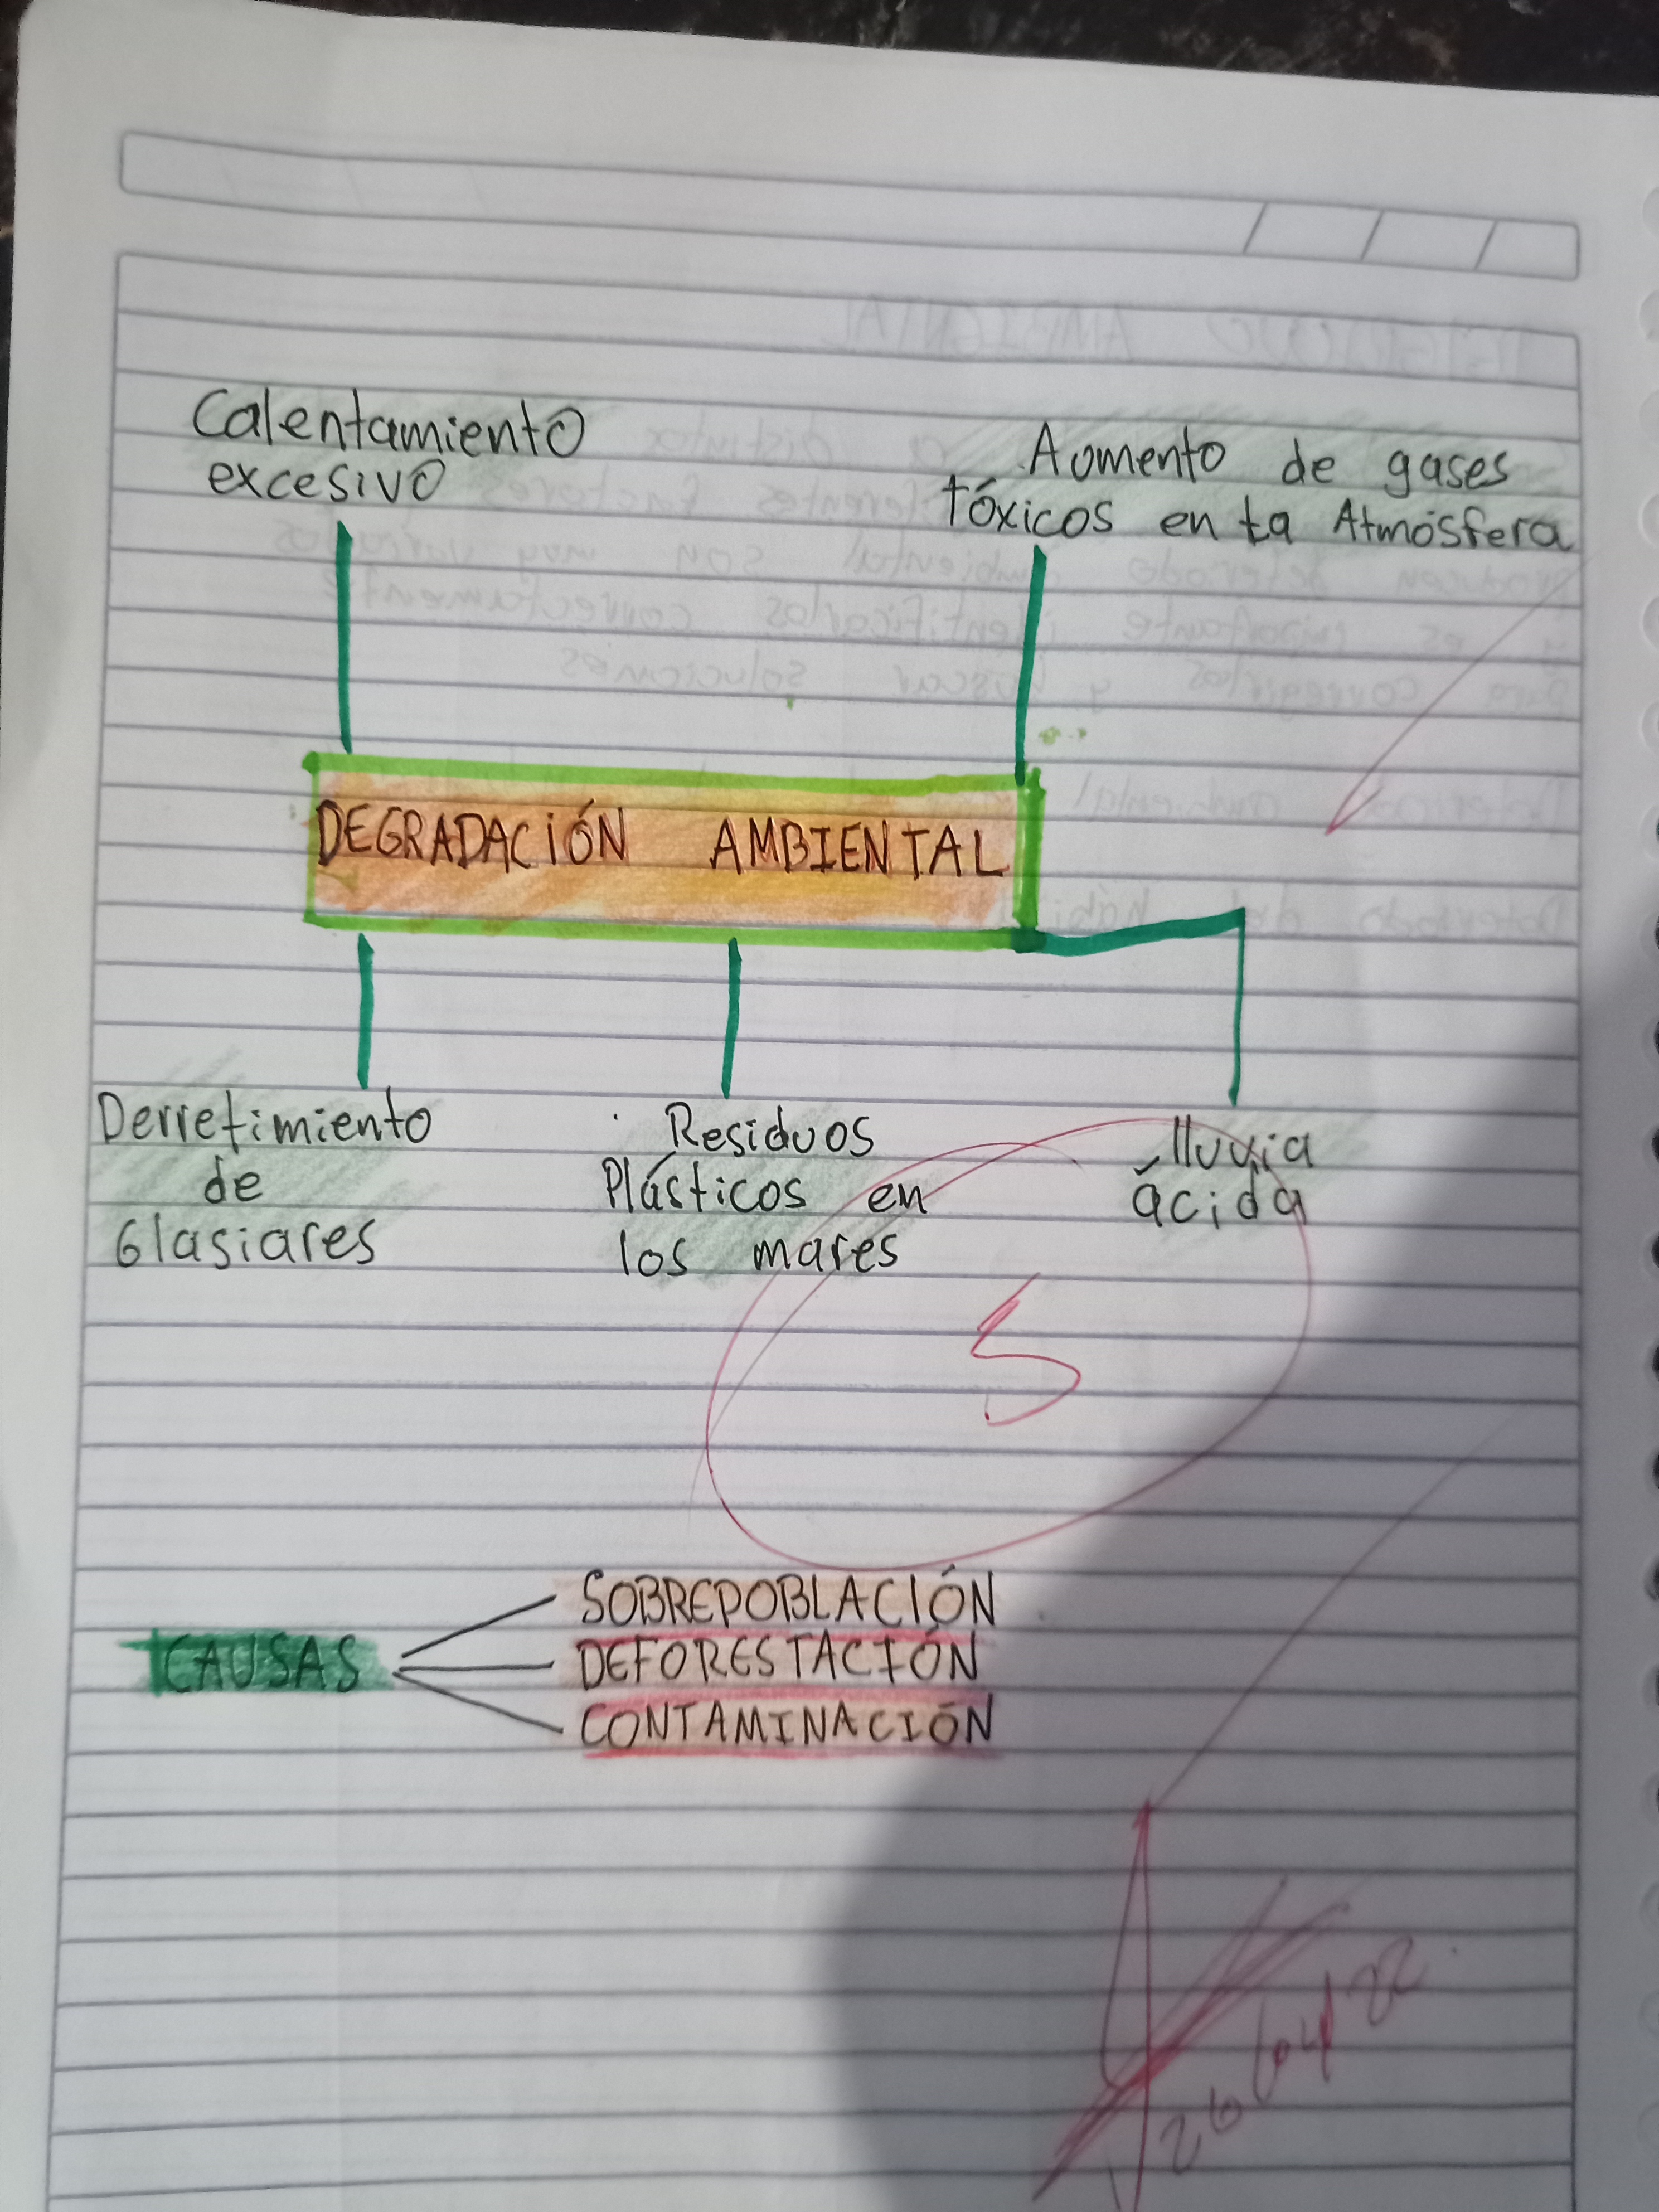 Calentamiento
excesivo
Aumento de gases
tóxicos en la Atmósfera
DEGRADACIÓN AMBIENTAL
Derretimiento
de
Glasiares
Residuos
Plásticos en
los mares
lluvia
ácida
5
CAUSAS
SOBREPOBLACIÓN
DEFORESTACIÓN
CONTAMINACIÓN